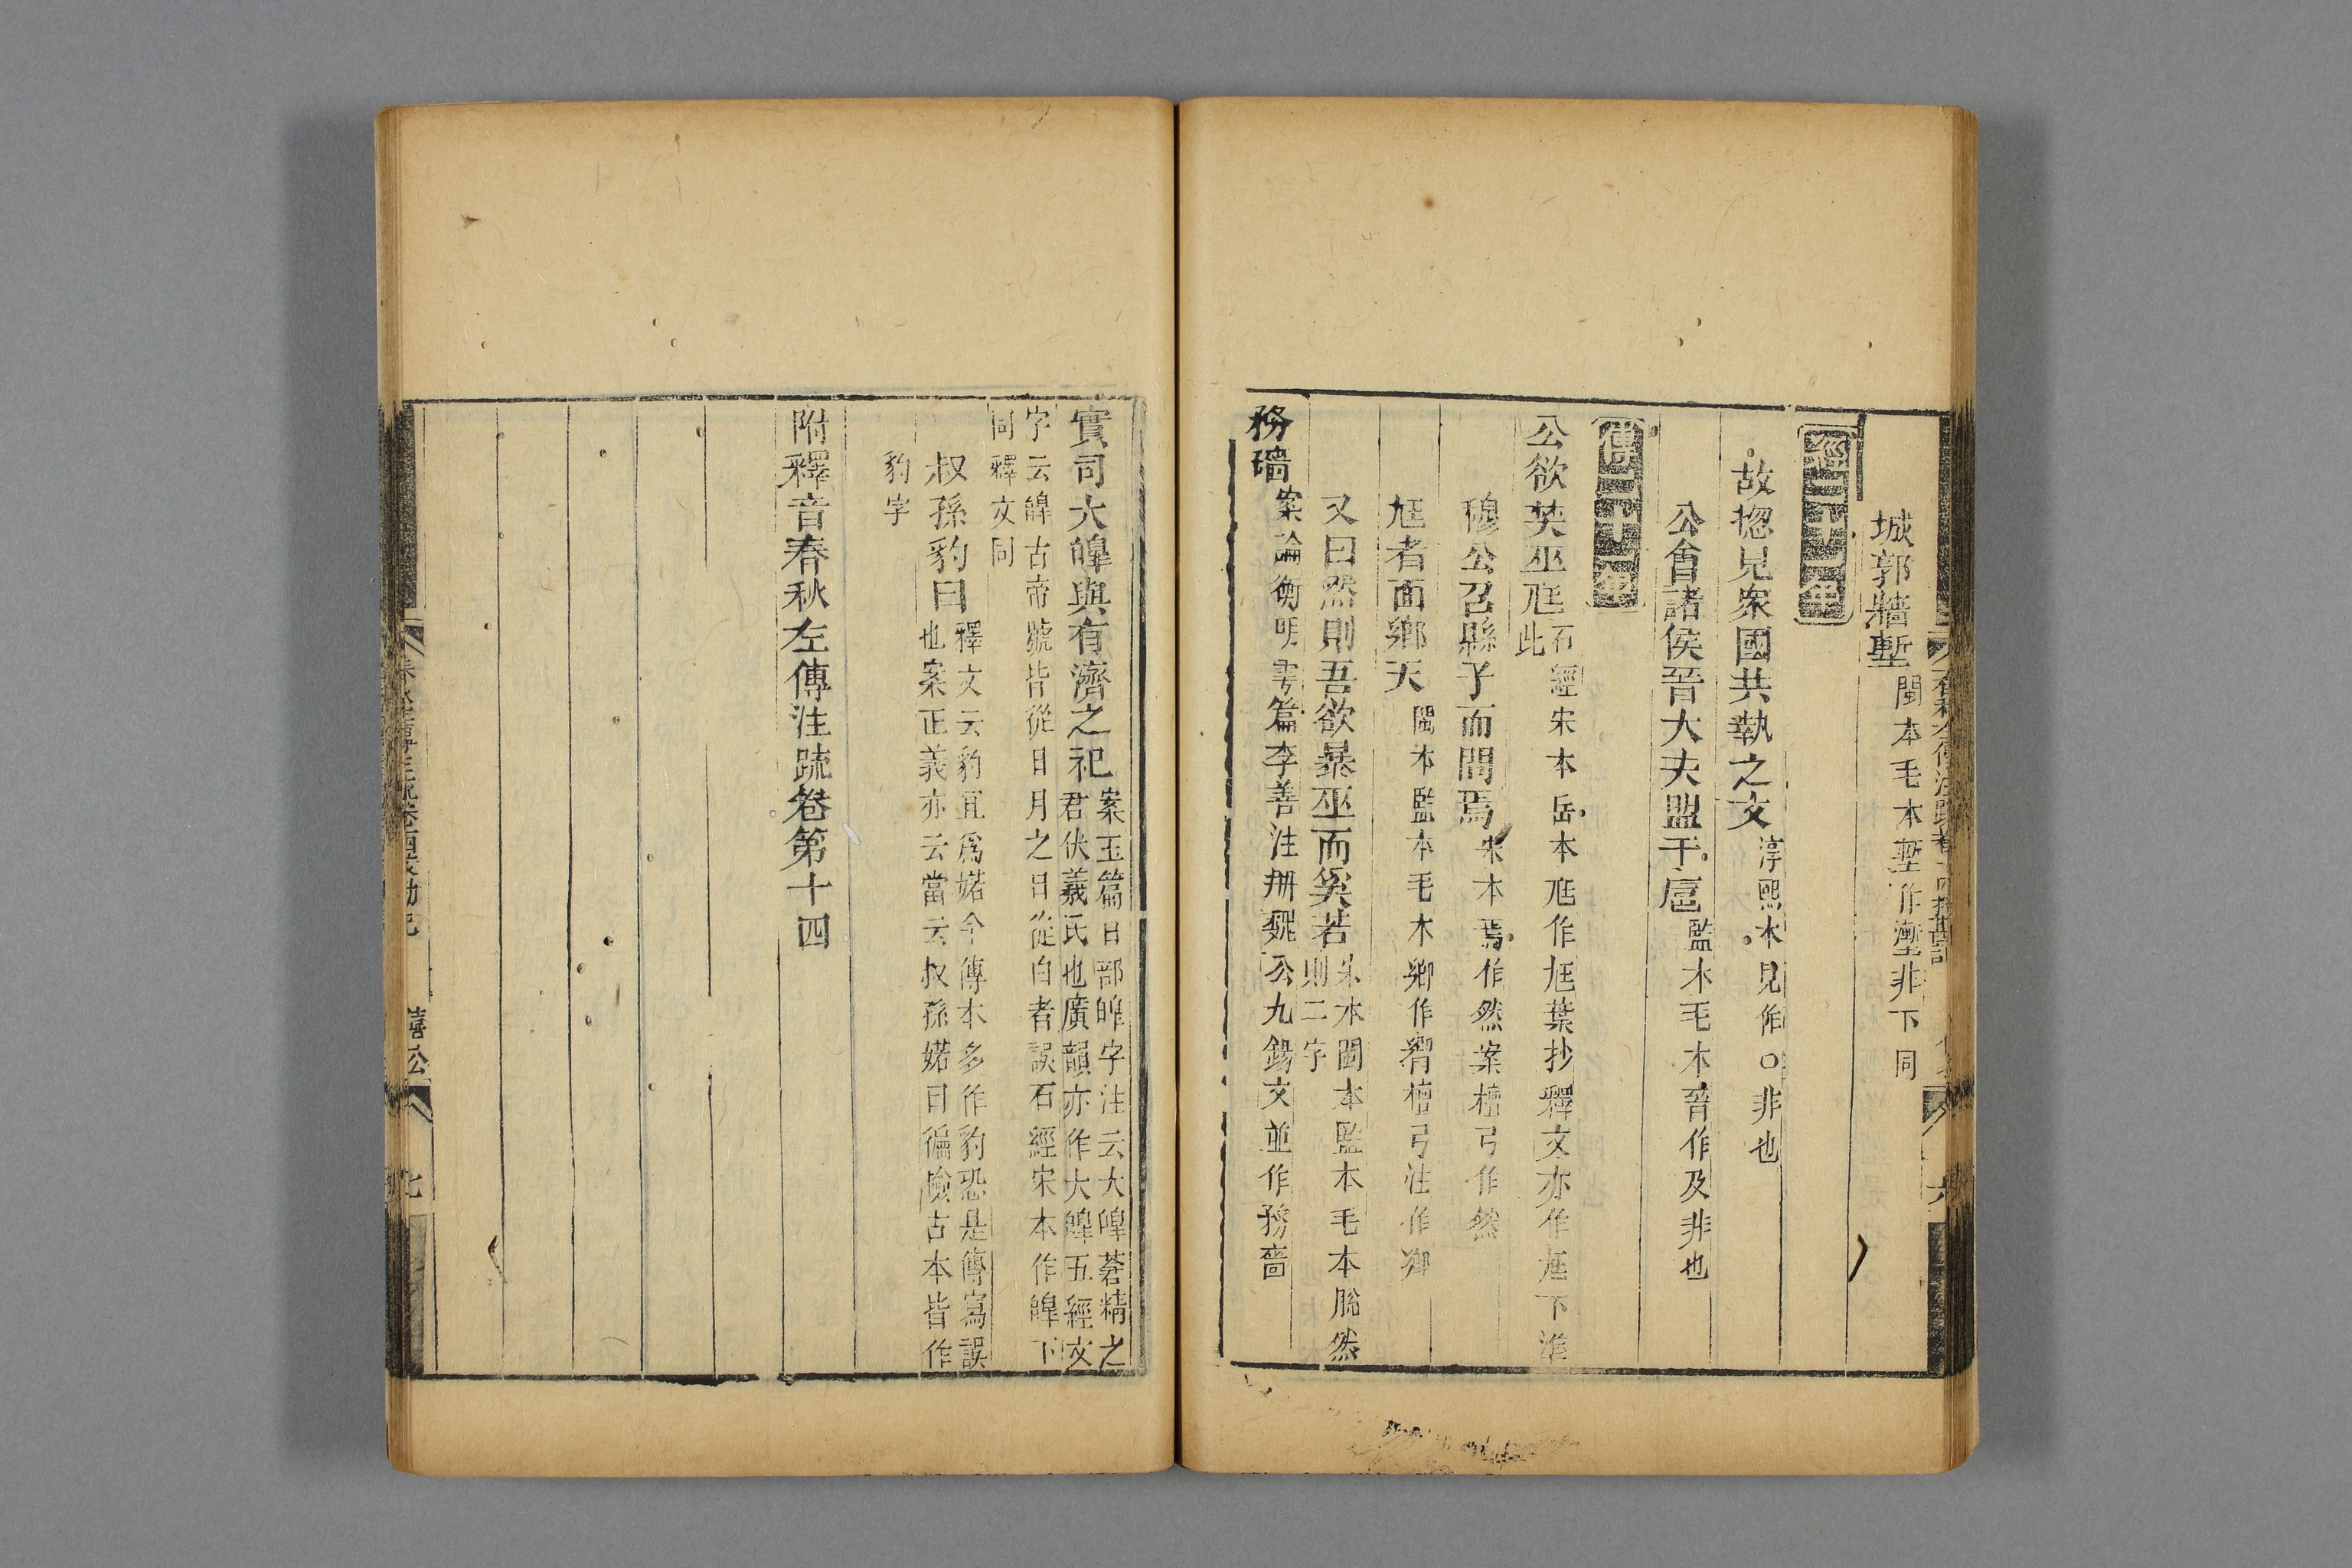 城郭牆塹閩本毛本塹作壍非下同
經二十一年
故揔見衆國共執之文淳熙本見作○非也
公會諸侯晉大夫盟于扈監本毛本晉作及非也
傳二十一年
公欲焚巫尫石經宋本岳本尫作尪葉抄釋文亦作尪下準此
穆公召縣子而問焉宋本焉作然案檀弓作然
尪者面鄉天閩本監本毛本鄉作嚮檀弓注作鄉
又曰然則吾欲暴巫而奚若宋本閩本監本毛本脫然則二字
務穡案論衡明雩篇李善注冊魏公九錫文並作務嗇
實司大皞與有濟之祀案玉篇日部皞字注云大皞蒼精之君伏羲氏也廣韻亦作大皞五經文
字云皞古帝號皆從日月之日從白者誤石經宋本作皞下同釋文同
叔孫豹曰釋文云豹宜爲婼今傳本多作豹恐是傳寫誤也案正義亦云當云叔孫婼曰徧檢古本皆作
豹字
附釋音春秋左傳注疏卷第十四
僖公